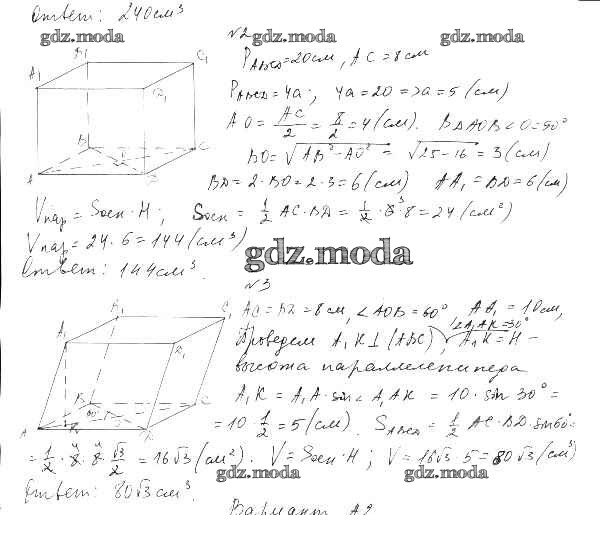 Ответ: 240 см³
gdz.moda gdz.moda gdz.moda
№2
P_ABCD = 20 см, AC = 8 см
P_ABCD = 4a; 4a = 20 => a = 5 (см)
AO = AC/2 = 8/2 = 4 (см). В △AOB ∠O = 90°
BO = √(AB² - AO²) = √(25 - 16) = 3 (см)
BD = 2 · BO = 2 · 3 = 6 (см) AA₁ = BD = 6 (см)
V пар = Sосн · H; Sосн = 1/2 AC · BD = 1/2 · 6 · 8 = 24 (см²)
V пар = 24 · 6 = 144 (см³)
gdz.moda
Ответ: 144 см³.
№3
AC = BD = 8 см, ∠AOB = 60° AA₁ = 10 см,
∠A₁AK = 30°
Проведем A₁K ⊥ (ABC), A₁K = H -
высота параллелепипеда
A₁K = A₁A · sin ∠A₁AK = 10 · sin 30° =
= 10 · 1/2 = 5 (см). S_ABCD = 1/2 AC · BD · sin 60° =
= 1/2 · 8 · 8 · √3/2 = 16√3 (см²). V = Sосн · H; V = 16√3 · 5 = 80√3 (см³)
gdz.moda gdz.moda
Ответ: 80√3 см³.
Вариант А2
A₁ B₁ C₁ D₁
A B C D
A₁ B₁ C₁ D₁
A B C D K
60°